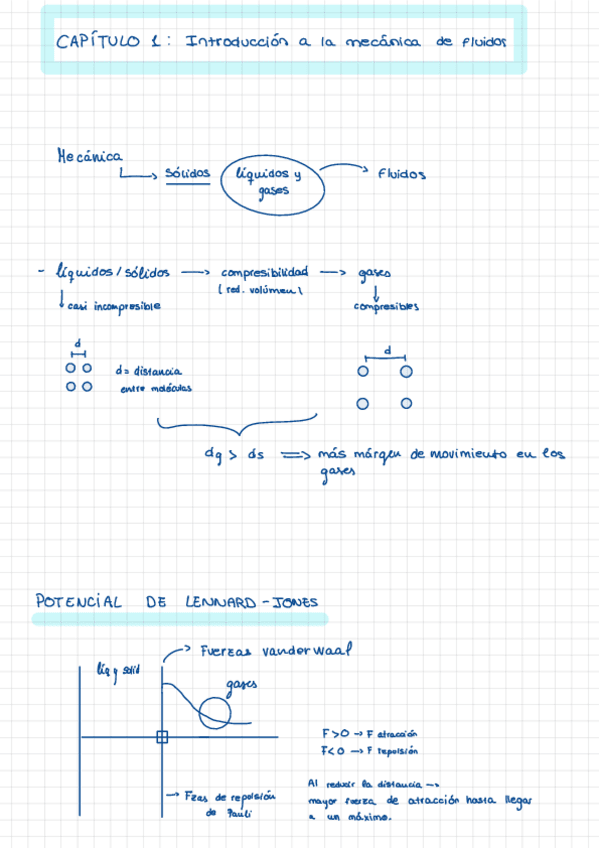 CAPÍTULO 1: Introducción a la mecánica de fluidos
Mecánica
sólidos
líquidos y
gases
Fluidos
- líquidos/sólidos → compresibilidad → gases
(red. volúmen)
↓ casi incompresible
↓ compresibles
d
d
d = distancia
entre moléculas
dg > ds ⇒ más márgen de movimiento en los
gases
POTENCIAL DE LENNARD-JONES
→ Fuerzas vander waal
líq y solid
gases
F>0 → F atracción
F<0 → F repulsión
→ Fzas de repulsión
de Pauli
Al reducir la distancia →
mayor fuerza de atracción hasta llegar
a un máximo.